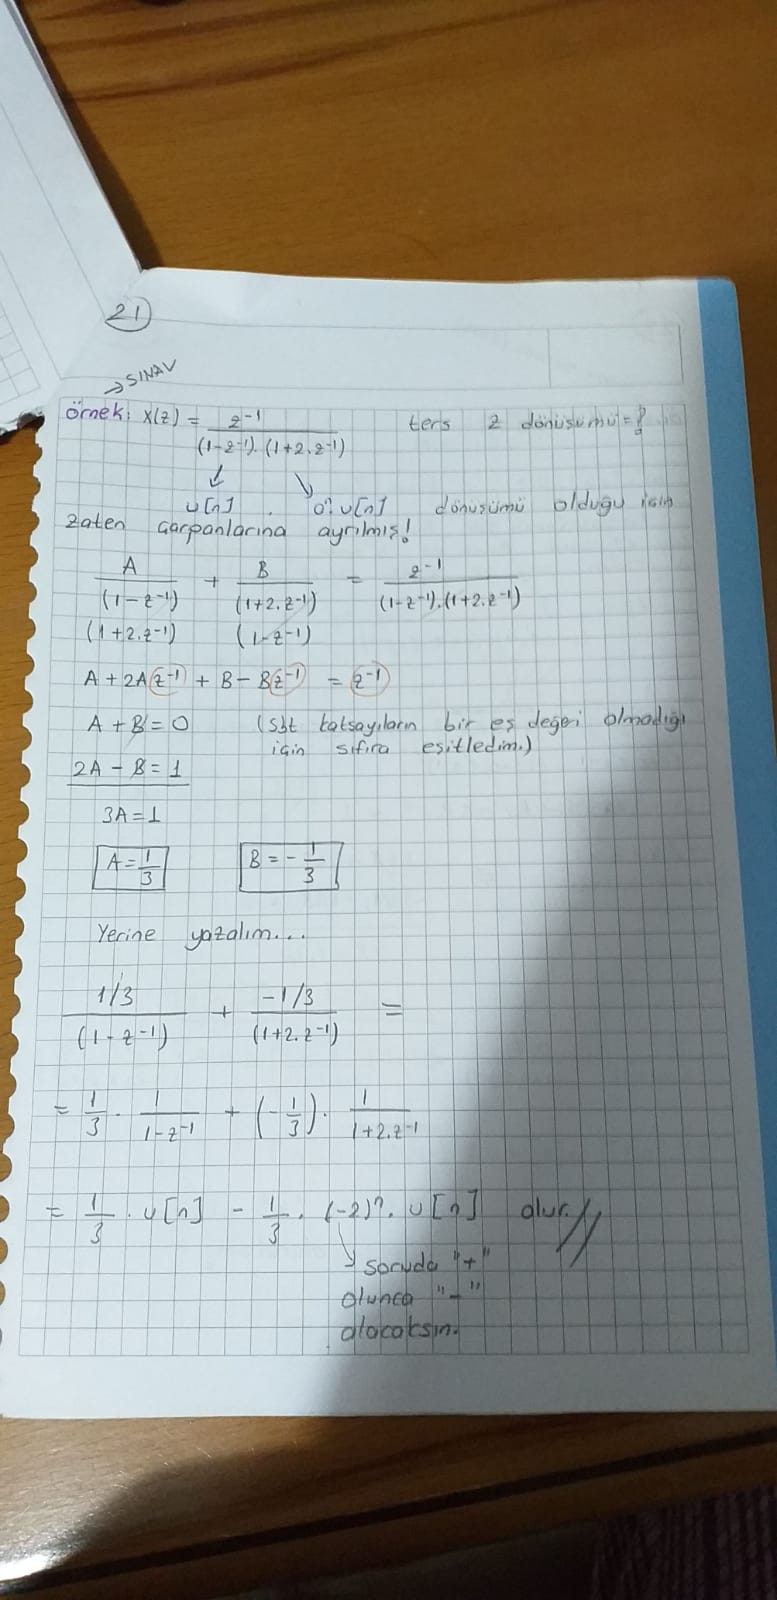 21
→ SINAV
örnek: X(z) = z⁻¹ / (1-z⁻¹).(1+2.z⁻¹) ters z dönüşümü = ?
u[n] . aⁿ.u[n] dönüşümü olduğu için
zaten çarpanlarına ayrılmış!
A / (1-z⁻¹) + B / (1+2.z⁻¹) = z⁻¹ / (1-z⁻¹).(1+2.z⁻¹)
(1+2.z⁻¹) (1-z⁻¹)
A + 2Az⁻¹ + B - Bz⁻¹ = z⁻¹
A + B = 0 (Sbt katsayıların bir eş değeri olmadığı
için sıfıra eşitledim.)
2A - B = 1
3A = 1
A = 1/3 B = -1/3
Yerine yazalım...
1/3 / (1-z⁻¹) + -1/3 / (1+2.z⁻¹) =
= 1/3 . 1 / 1-z⁻¹ + (-1/3) . 1 / 1+2.z⁻¹
= 1/3 . u[n] - 1/3 . (-2)ⁿ. u[n] olur.//
soruda "+"
olunca "-"
alacaksın.